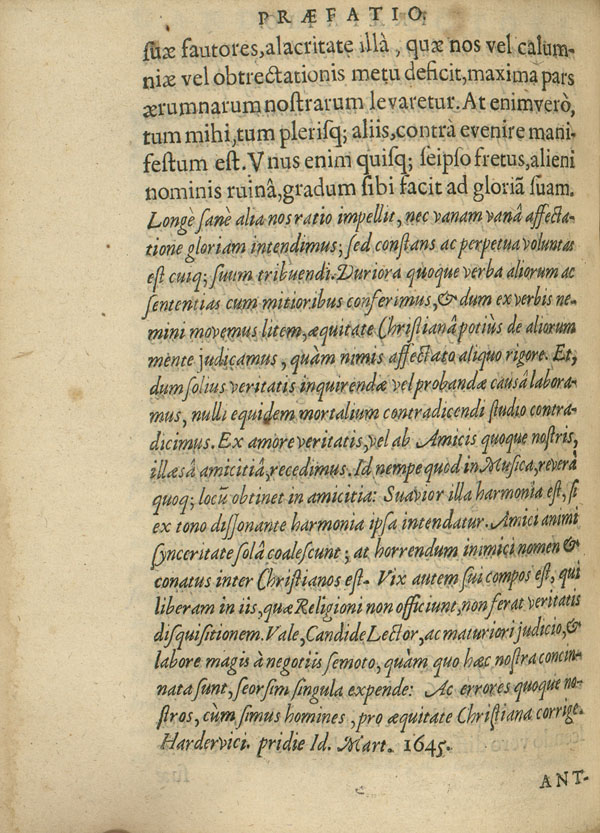 PRÆFATIO.
ſuæ fautores, alacritate illâ, quæ nos vel calum-
niæ vel obtrectationis metu deficit, maxima pars
ærumnarum noſtrarum levaretur. At enimverò,
tum mihi, tum pleriſq; aliis, contrà evenire mani-
feſtum eſt. Vnus enim quiſq; ſeipſo fretus, alieni
nominis ruinâ, gradum ſibi facit ad gloriã ſuam.
Longè ſanè alia nos ratio impellit, nec vanam vanâ affecta-
tione gloriam intendimus; ſed conſtans ac perpetua voluntas
eſt cuiq; ſuum tribuendi. Duriora quoque verba aliorum ac
ſententias cum mitioribus conferimus, & dum ex verbis ne-
mini movemus litem, æquitate Chriſtianâ potiùs de aliorum
mente judicamus, quàm nimis affectato aliquo rigore. Et,
dum ſolius veritatis inquirendæ vel probandæ causâ labora-
mus, nulli equidem mortalium contradicendi ſtudio contra-
dicimus. Ex amore veritatis, vel ab Amicis quoque noſtris,
illæsâ amicitiâ, recedimus. Id nempe quod in Muſica, reverà
quoq; locũ obtinet in amicitia: Suavior illa harmonia eſt, ſi
ex tono diſſonante harmonia ipſa intendatur. Amici animi
ſynceritate ſolâ coaleſcunt; at horrendum inimici nomen &
conatus inter Chriſtianos eſt. Vix autem ſui compos eſt, qui
liberam in iis, quæ Religioni non officiunt, non ferat veritatis
diſquiſitionem. Vale, Candide Lector, ac maturiori judicio, &
labore magis à negotiis ſemoto, quàm quo hæc noſtra concin-
nata ſunt, ſeorſim ſingula expende: Ac errores quoque no-
ſtros, cùm ſimus homines, pro æquitate Chriſtiana corrige.
Hardervici. pridie Id. Mart. 1645.
ANT-